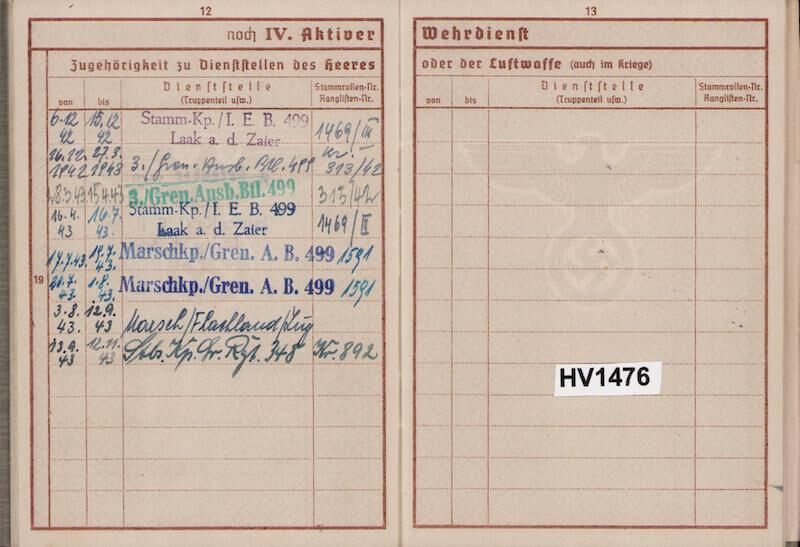 12
noch IV. Aktiver
Zugehörigkeit zu Dienststellen des Heeres
von bis Dienststelle (Truppenteil usw.) Stammrollen-Nr. Ranglisten-Nr.
6.12 42 15.12 42 Stamm-Kp./I. E. B. 499
Laak a. d. Zaier 1469/III
16.12. 1942 27.3. 1943 3./Gren. Ausb. Btl. 499 Nr. 313/42
28.3.43 15.4.43 3./Gren.Ausb.Btl.499 313/42
16.4. 43 16.7. 43. Stamm-Kp./I. E. B. 499
Laak a. d. Zaier 1469/II
17.7.43. 19.7. 43. Marschkp./Gren. A. B. 499 1591
19
20.7. 43. 1.8. 43. Marschkp./Gren. A. B. 499 1591
3.8. 43. 12.9. 43 Marsch/Flachland/Zug
13.9. 43 12.11. 43 Stbs. Kp. Gr. Rgt. 348 Nr. 892
13
Wehrdienst
oder der Luftwaffe (auch im Kriege)
von bis Dienststelle (Truppenteil usw.) Stammrollen-Nr. Ranglisten-Nr.
HV1476